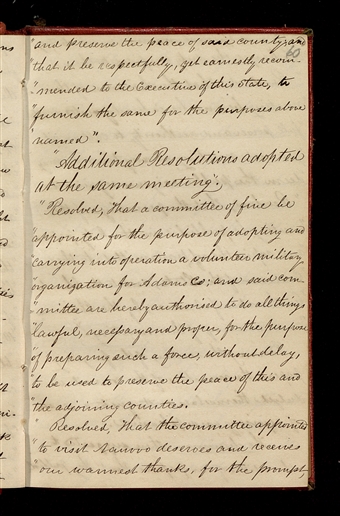 60
"and preserve the peace of said county, and
"that it be respectfully, yet earnestly recom-
"mended to the Executive of this State, to
"furnish the same for the purposes above
"named".
"Additional Resolutions adopted
at the same meeting".
"Resolved, That a committee of five be
"appointed for the purpose of adopting and
"carrying into operation a volunteer military
"organization for Adams Co; and said com-
"mittee are hereby authorised to do all things
"lawful, necessary and proper, for the purpose
"of preparing such a force, without delay,
"to be used to preserve the peace of this and
"the adjoining counties.
"Resolved, That the committee appointed
"to visit Nauvoo deserves and receives
"our warmest thanks, for the prompt,